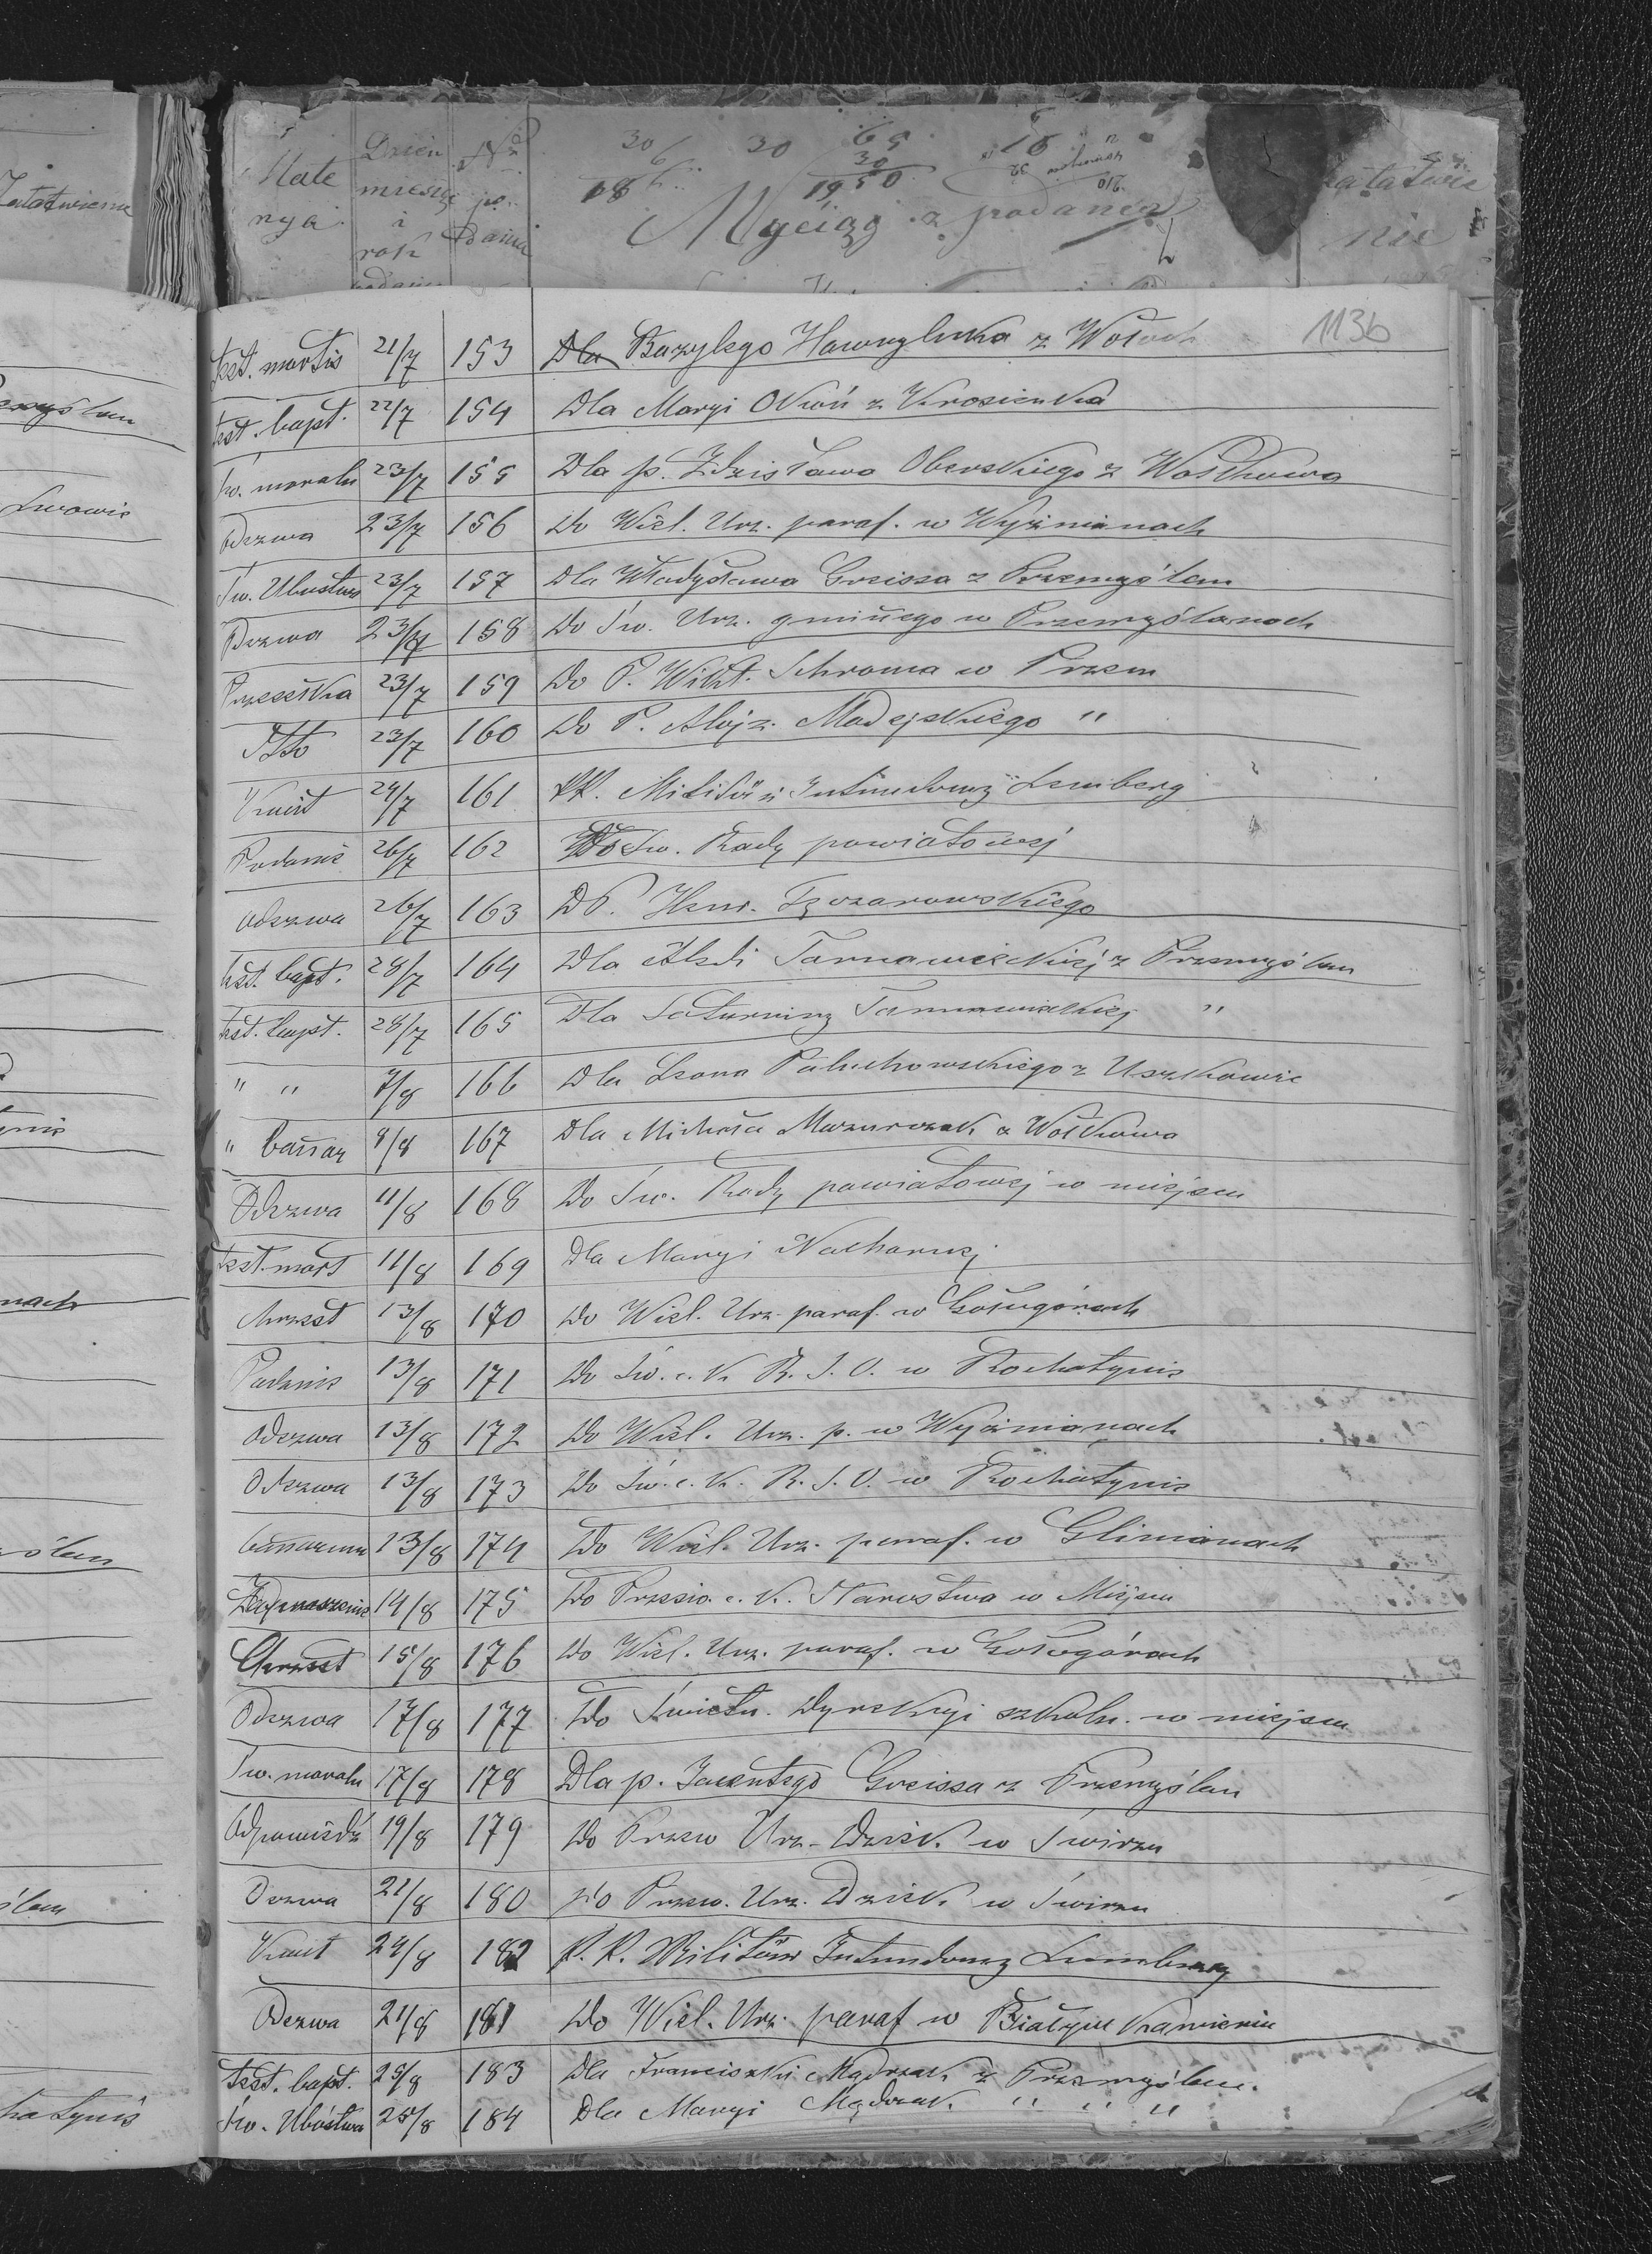 Zalatwienie
Mate
rya
Dzień
miesiąc
i
rok
podania
Nr
po-
dania
30 6
18 6
30
65
30
19 50
16
Wyciąg z podania
Załatwie
nie
1136
test. mortis 21/7 153 Dla Bazylego Hawryluka z Wołoch
test. bapt. 22/7 154 Dla Maryi Okoń z Krosienka
św. moraln 23/7 155 Dla p. Zdzisława Oberskiego z Wołkowa
Odezwa 23/7 156 Do Wiel. Urz. paraf. w Wyżnianach
Św. Ubóstwa 23/7 157 Dla Władysława Greissa z Przemyślan
Odezwa 23/7 158 Do Św. Urz. gminnego w Przemyślanach
Przesełka 23/7 159 Do P. Wikt. Schrama w Przem
Dtto 23/7 160 Do P. Alojz. Madejskiego "
Kwit 24/7 161 KK. Militär Intendanz Lemberg
Podanie 26/7 162 Do Św. Rady powiatowej
Odezwa 26/7 163 DP. Henr.
test. bapt. 28/7 164 Dla Tarnawieckiej z Przemyślan
test. bapt. 28/7 165 Dla Saturniny Tarnawieckiej "
" " 7/8 166 Dla Leona Paluchowskiego z Uszkowic
" bannar 8/8 167 Dla Michała Mazurczak z Wołkowa
Odezwa 11/8 168 Do Św. Rady powiatowej w miejscu
test. mort 11/8 169 Dla Maryi
Chrzest 13/8 170 Do Wiel. Urz. paraf. w Gołogórach
Podanie 13/8 171 Do Św. c. k. R. S. O. w Rochatynie
Odezwa 13/8 172 Do Wiel. Urz. p. w Wyżnianach
Odezwa 13/8 173 Do Św. c. k. R. S. O. w Rochatynie
bannorum 13/8 174 Do Wiel. Urz. paraf. w Glinianach
14/8 175 Do Prześw. c. k. Starostwa w Miejscu
Chrzest 15/8 176 Do Wiel. Urz. paraf. w Gołogórach
Odezwa 17/8 177 Do Świetn. Dyrekcyi szkoln. w miejscu
Św. moraln 17/8 178 Dla p. Jacentego Greissa z Przemyślan
Odpowiedź 19/8 179 Do Przew Urz. Dziek. w Świrzu
Odezwa 21/8 180 Do Przew. Urz. Dziek. w Świrzu
Kwit 24/8 182 K. K. Militär Intendanz Lemberg
Odezwa 21/8 181 Do Wiel. Urz. paraf w Białym Kamieniu
test. bapt. 25/8 183 Dla Franciszki Mądrzak z Przemyślan.
Św. Ubóstwa 25/8 184 Dla Maryi Mądrzak. " " "